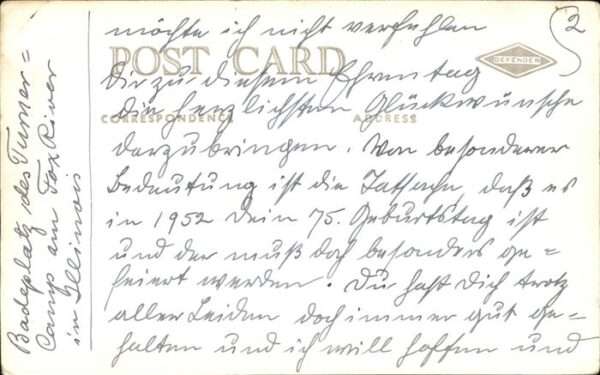 2
möchte ich nicht verfehlen
POST CARD
DEFENDER
Dir zu diesem Ehrentag
die herzlichsten Glückwünsche
CORRESPONDENCE
ADDRESS
darzubringen. Von besonderer
Bedeutung ist die Tatsache, daß es
in 1952 Dein 75. Geburtstag ist
und der muß doch besonders ge=
feiert werden. Du hast Dich trotz
aller Leiden doch immer gut ge=
halten und ich will hoffen und
Badeplatz des Turner=
Camps am Fox River
in Illinois